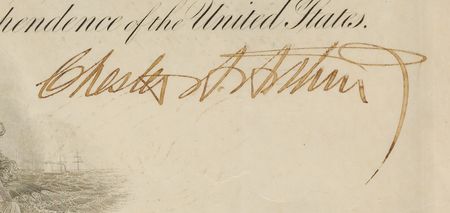 pendence of the United States.
Chester A. Arthur